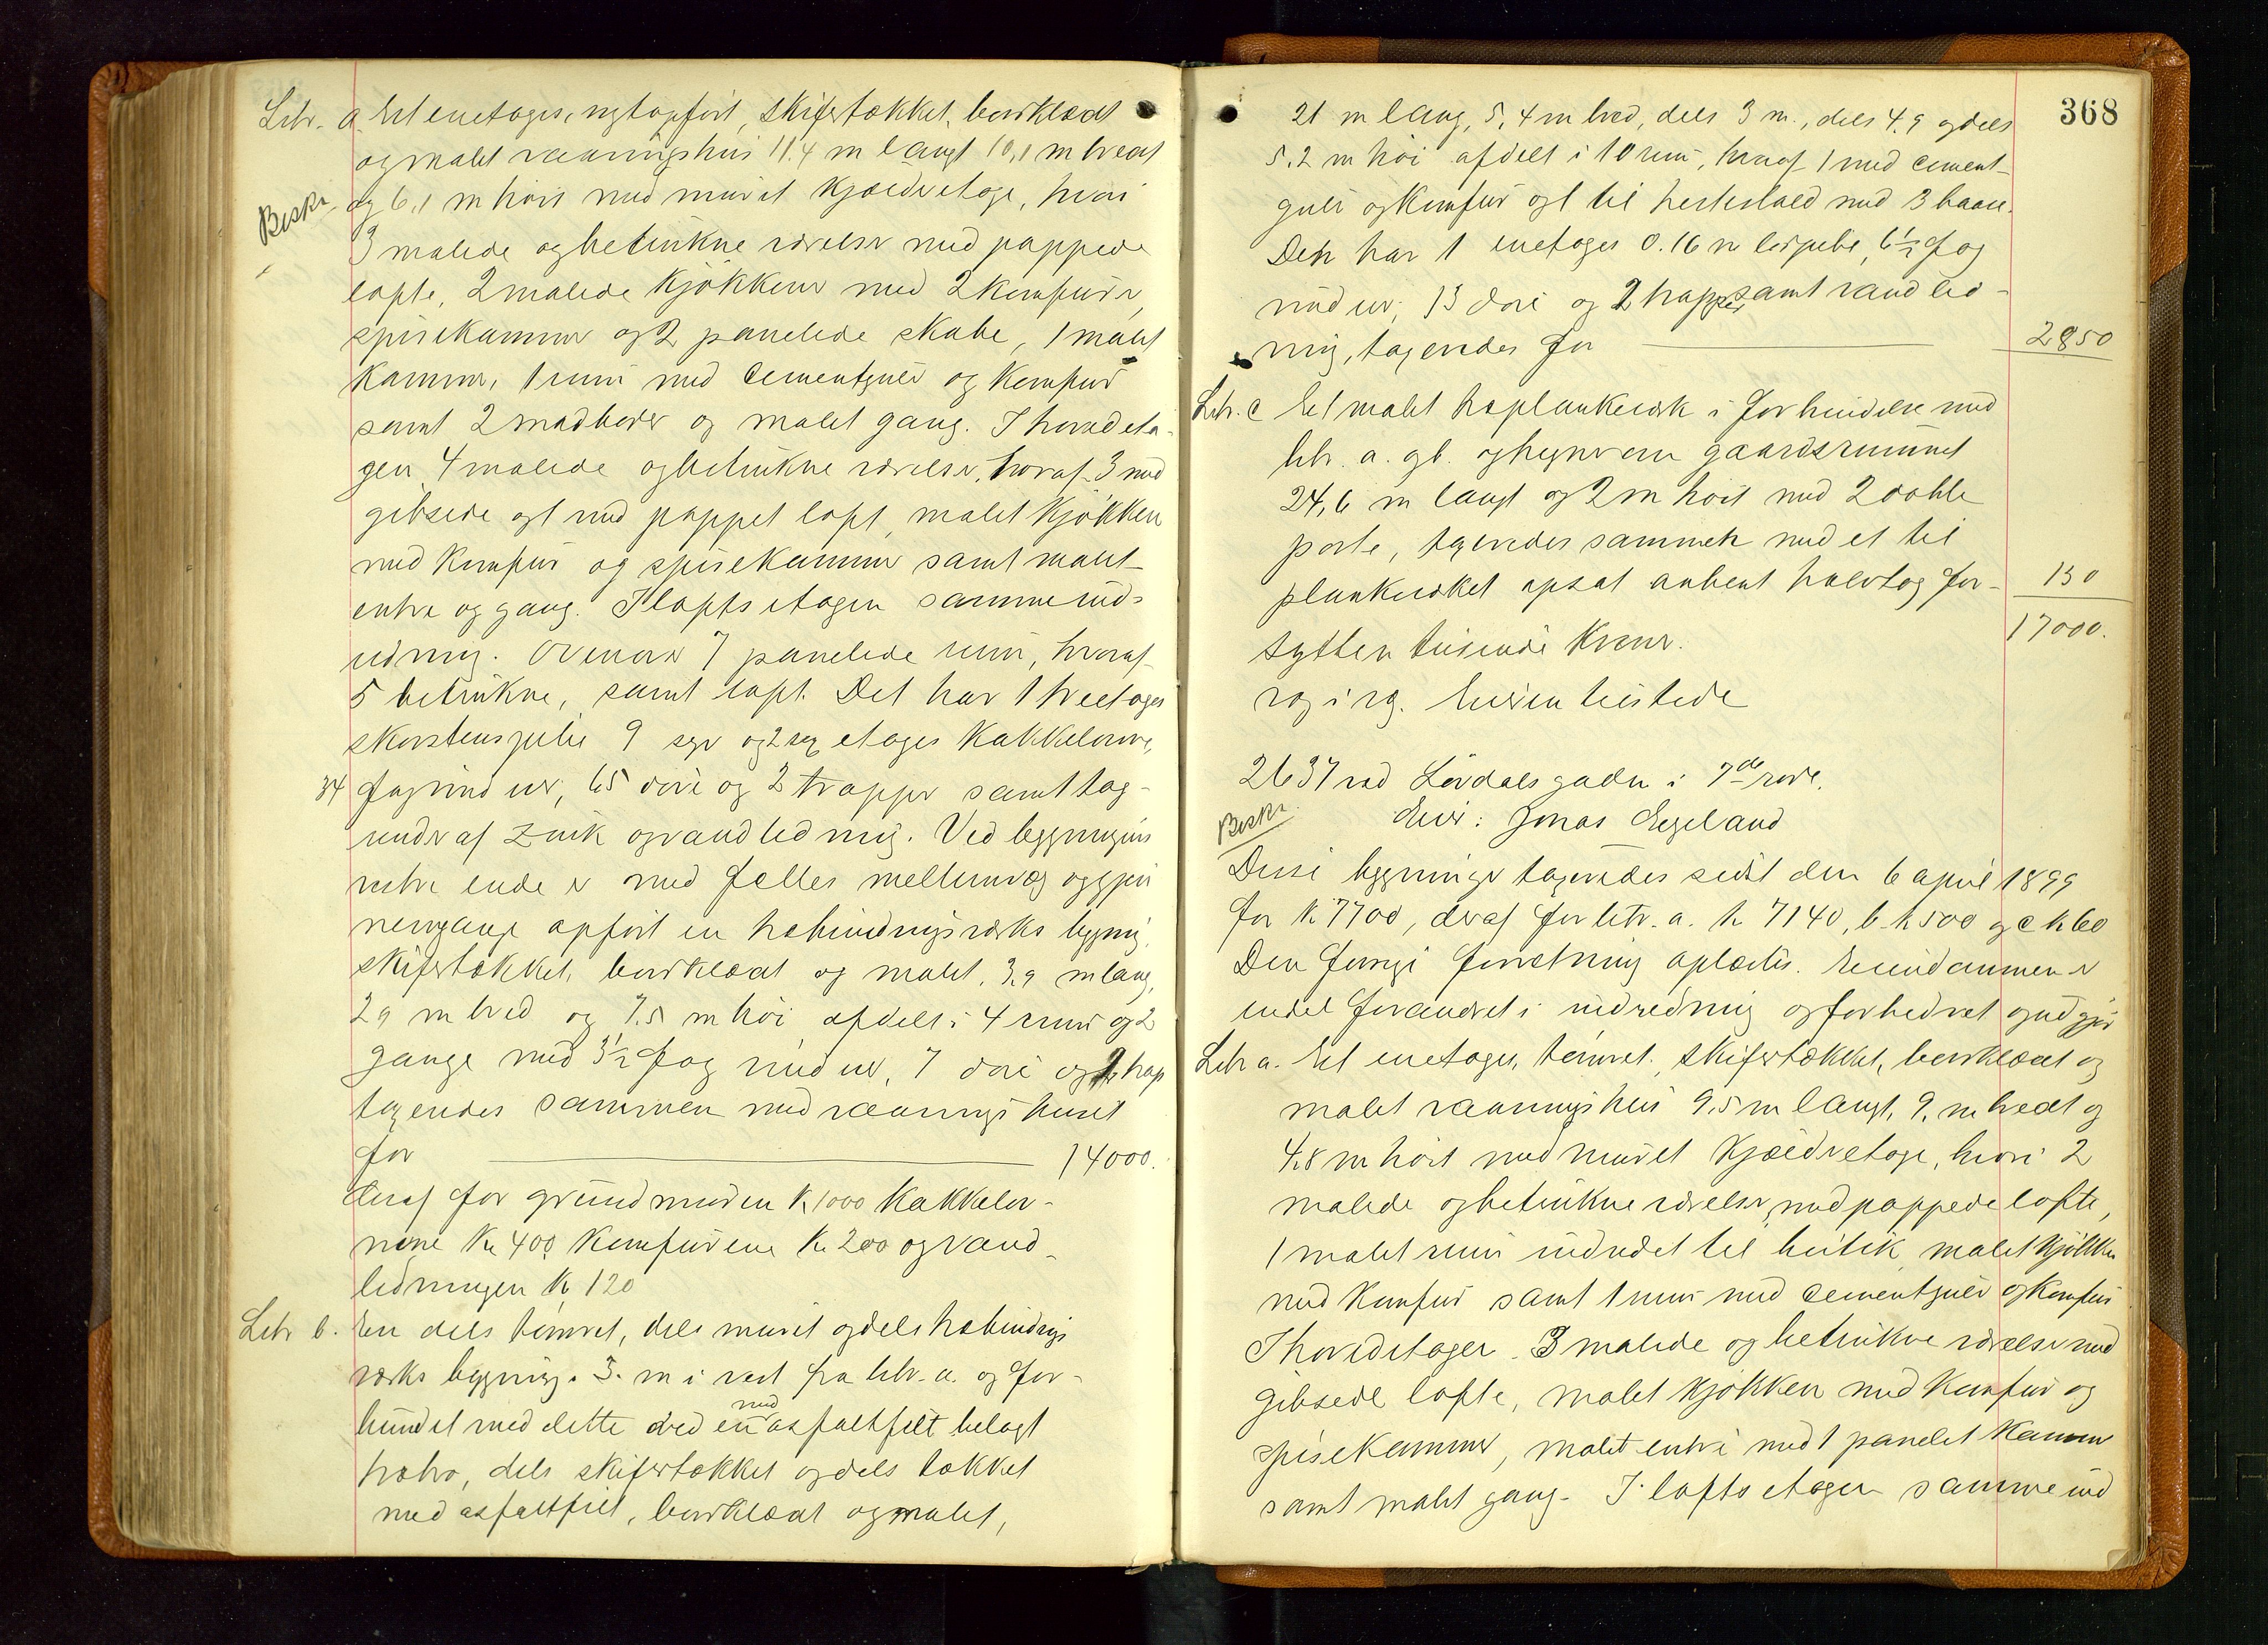 Litr. a Et enetages, nyt opført, skifertækket, bordklædt
og malet vaaningshus 11.4 m langt 10,1 m bredt
Beskr. og 6,1 m høit med muret kjælderetage, hvori
3 malede og betrukne værelser med pappede
lofte, 2 malede kjøkkener med 2 komfurer,
spisekammer og 2 panelede skabe, 1 malet
kammer, 1 rum med cementgulv og komfur
samt 2 madboder og malet gang. I hovedeta-
gen 4 malede og betrukne værelser, hvoraf 3 med
gibsede og 1 med pappet loft, malet kjøkken
med komfur og spisekammer samt malet
entre og gang. I loftsetagen samme ind-
redning. Ovenover 7 panelede rum, hvoraf
5 betrukne, samt loft. Det har 1 treetages
skorstenspibe 9 og 2 etages kakkelovne,
34 fag vinduer, 65 døre og 2 trapper samt tag-
render af zink og vandledning. Ved bygningens
vestre ende er med fælles mellemvæg og gjen-
nemgange opført en træbindingsværks bygning,
skifertækket, bordklædt og malet, 3,9 m lang,
2,9 m bred og 7,5 m høi afdelt i 4 rum og 2
gange med 3½ fag vinduer, 7 døre og trap
tagendes sammen med vaaningshuset
for 14000.
deraf for grundmuren k 1000 kakkelov-
nene kr 400 komfurene kr 200 og vand-
ledningen kr 120
Litr b. En dels tømret, dels muret og dels træbindings
værks bygning 3. m i vest fra litr. a. og for-
bundet med dette ved en med asfaltfilt belagt
træbro, dels skifertækket og dels tækket
med asfaltfilt, bordklædt og malet,
368
21 m lang, 5,4 m bred, dels 3 m., dels 4.9 og dels
5.2 m høi afdelt i 10 rum, hvoraf 1 med cement-
gulv og komfur og 1 til hestestald med 3 baase.
Den har 1 enetages 0.16 m lerpibe, 6½ fag
vinduer, 13 døre og 2 trapper, samt vandled-
ning, tagendes for 2850
Litr. c Et malet træplankeværk i forbindelse med
litr. a. og b. og hegner om gaardsrummet
24,6 m langt og 2 m høit med 2 doble
porte, tagendes sammen med et til
plankeværket opsat aabent halvtag for 150
sytten tusinde kroner. 17000.
rog i rg. Eieren tilstede
2637 ved Løvdalsgaden i 7de rode.
Beskr. Eier: Jonas Egeland
Disse bygninger tagendes sidst den 6 april 1899
for kr 7700, deraf for litr. a. kr 7140, b. kr 500 og c kr 60
Den forrige forretning oplæstes. Eiendommen er
endel forandret i indredning og forbedret og udgjør
Litr a. Et enetages, tømret, skifertækket, bordklædt og
malet vaaningshus 9,5 m langt, 9, m bredt og
4,8 m høit med muret kjælderetage, hvori 2
malede og betrukne værelser, med pappede lofte,
1 malet rum indredet til butik, malet kjøkken
med komfur samt 1 rum med cementgulv og komfur
I hovedetagen 3 malede og betrukne værelser med
gibsede lofte, malet kjøkken med komfur og
spisekammer, malet entre med 1 panelet kammer
samt malet gang. I loftsetagen samme ind